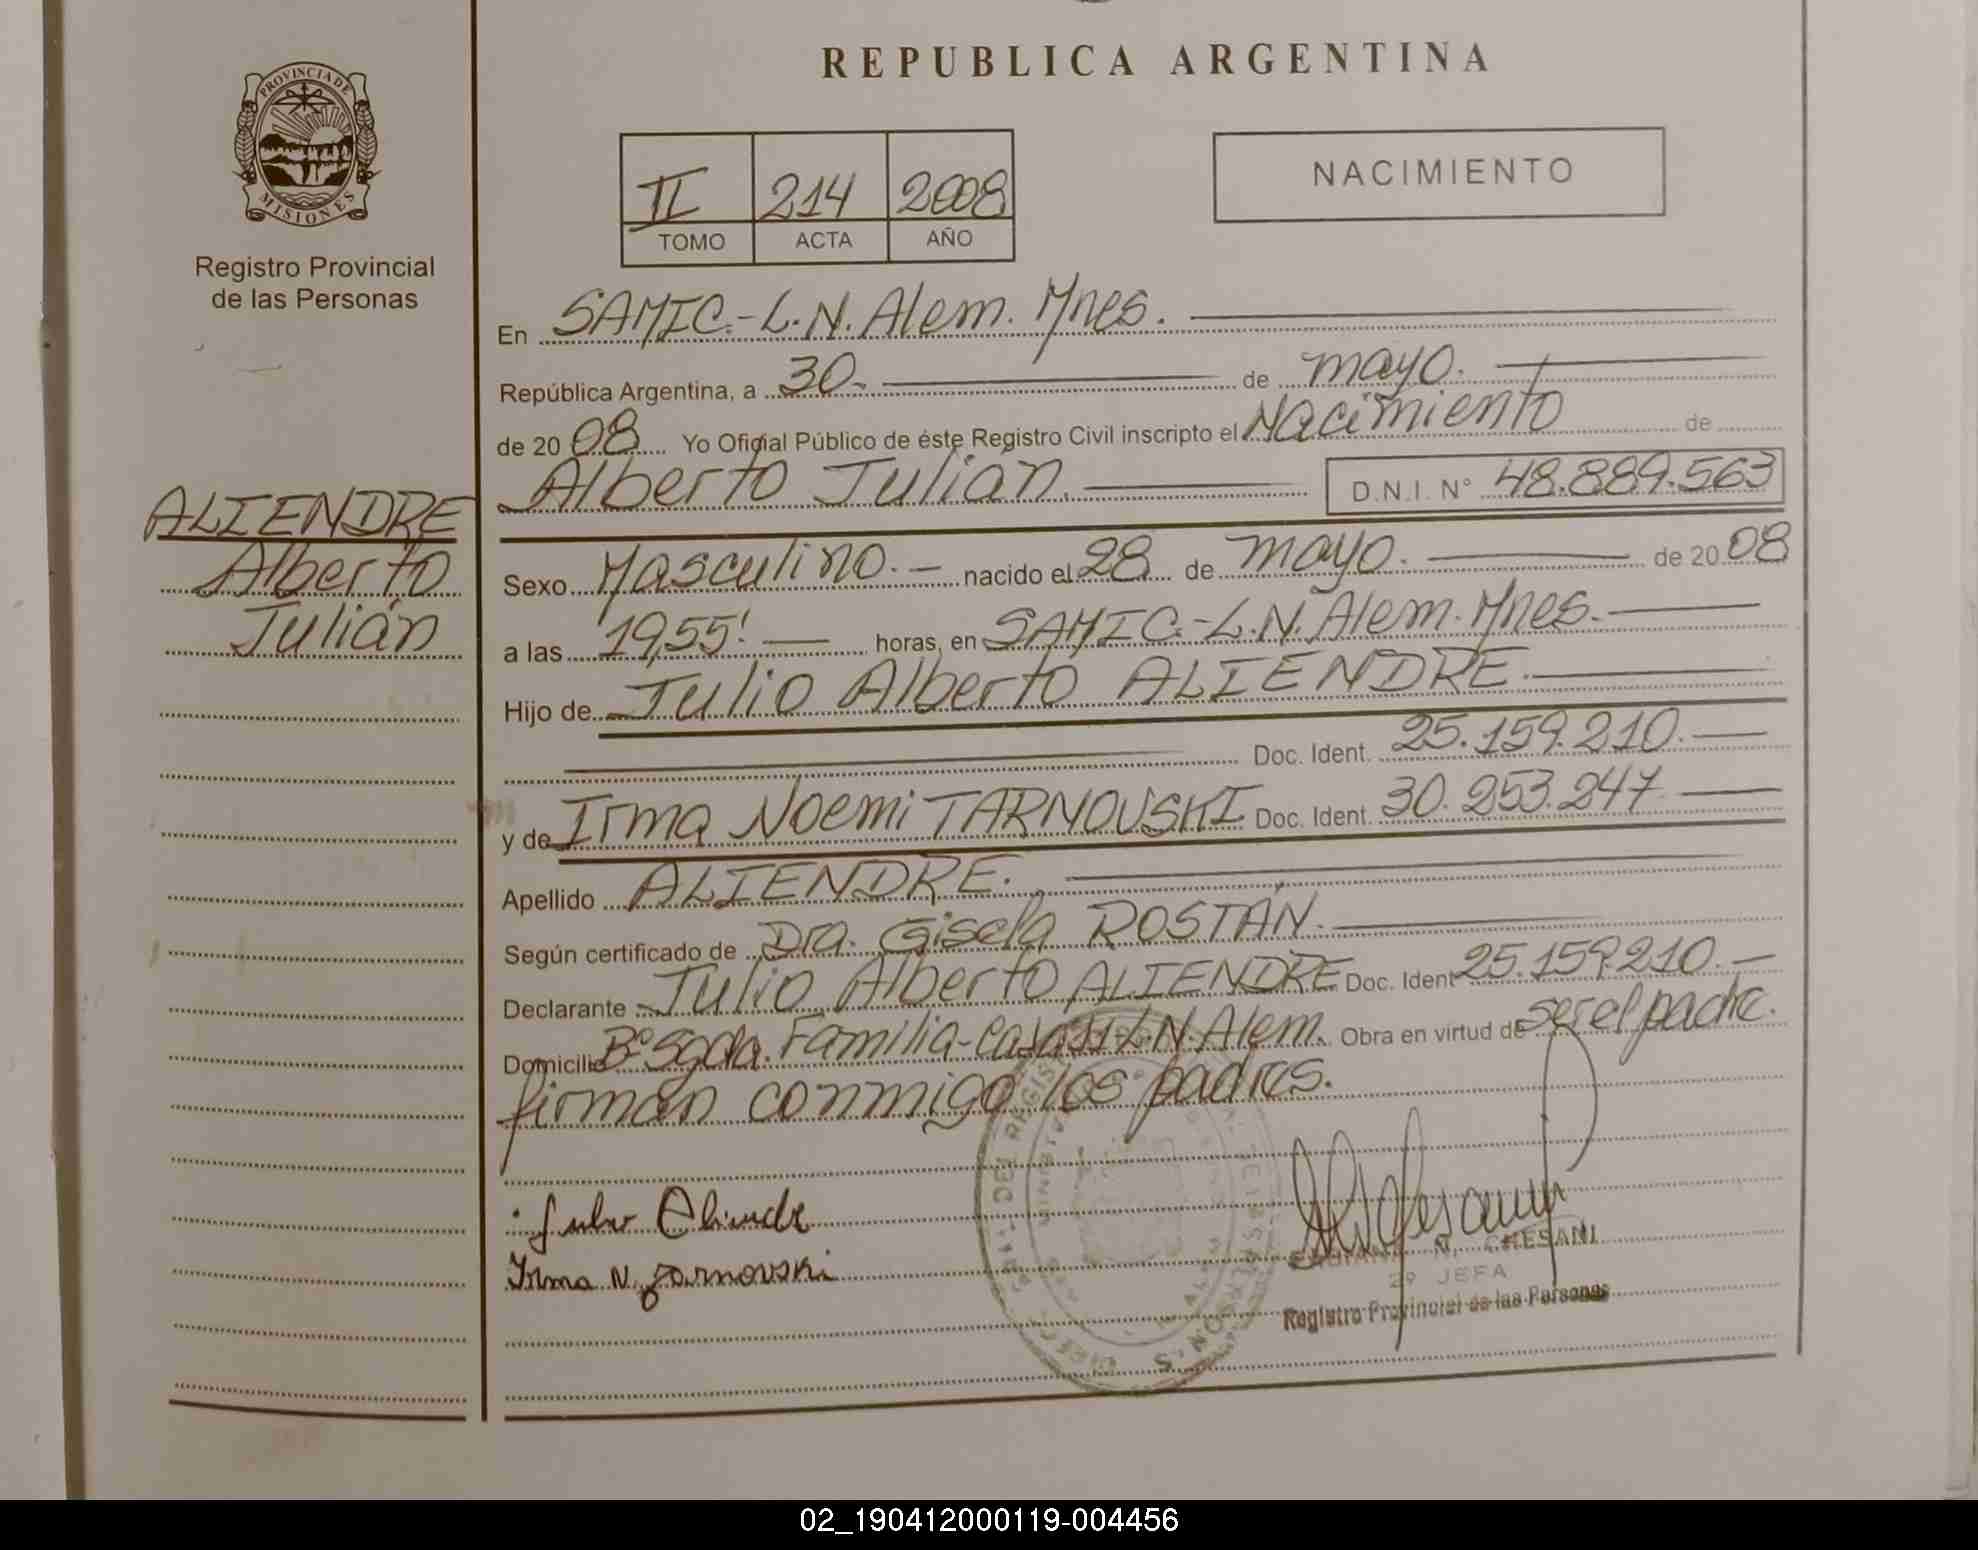 PROVINCIA DE
MISIONES
Registro Provincial
de las Personas
ALIENDRE
Alberto
Julián
REPUBLICA ARGENTINA
II 214 2008
TOMO ACTA AÑO
NACIMIENTO
En SAMIC.-L.N.Alem. Mnes.
República Argentina, a 30. de mayo.
de 2008 Yo Oficial Público de éste Registro Civil inscripto el Nacimiento de
Alberto Julián. D.N.I. N° 48.889.563
Sexo Masculino.- nacido el 28 de mayo. de 2008
a las 19,55' horas, en SAMIC.-L.N.Alem.Mnes.
Hijo de Julio Alberto ALIENDRE.
Doc. Ident. 25.159.210.
y de Irma Noemi TARNOUSKI Doc. Ident. 30.253.247
Apellido ALIENDRE.
Según certificado de Dra. Gisela ROSTÁN.
Declarante Julio Alberto ALIENDRE Doc. Ident 25.159.210.-
Domicilio B° Sgda. Familia- L.N.Alem. Obra en virtud de ser el padre.
firman conmigo los padres.
Irma N. Tarnovski
M. CHESANI
2º JEFA
Registro Provincial de las Personas
02_190412000119-004456